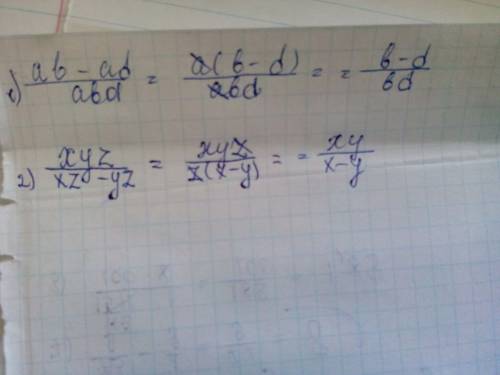 1) (ab - ad)/(abd) = (a(b - d))/(abd) = = (b-d)/(bd)
2) (xyz)/(xz - yz) = (xyz)/(z(x-y)) = = (xy)/(x-y)